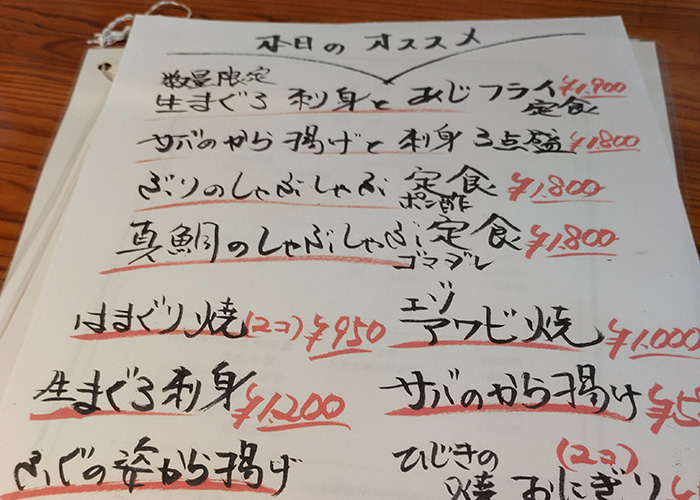 本日のオススメ
数量限定
生まぐろ刺身とあじフライ定食 ¥1,900
サバのから揚げと刺身3点盛 ¥1,800
ぶりのしゃぶしゃぶ定食 ポン酢 ¥1,800
真鯛のしゃぶしゃぶ定食 ゴマダレ ¥1,800
はまぐり焼(2コ) ¥950
エゾアワビ焼 ¥1,000
生まぐろ刺身 ¥1,200
サバのから揚げ ¥5
ふぐの姿から揚げ
ひじきの焼おにぎり(2コ)